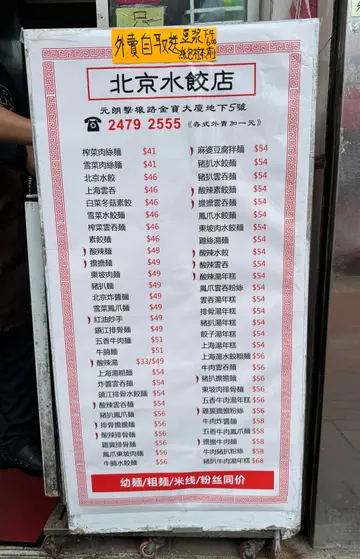 外賣自取送豆漿
北京水餃店
元朗擊壤路金寶大廈地下5號
☎ 2479 2555《各式外賣加一元》
榨菜肉絲麵 $41
雪菜肉絲麵 $41
北京水餃 $46
上海雲吞 $46
白菜冬菇餃 $46
雪菜水餃麵 $46
榨菜雲吞麵 $46
素餃麵 $46
酸辣麵 $49
擔擔麵 $49
東坡肉麵 $49
豬扒麵 $49
北京炸醬麵 $49
雪菜鳳爪麵 $49
紅油炒手 $49
鎮江排骨麵 $49
五香牛肉麵 $51
牛腩麵 $51
酸辣湯 $33/$49
上海湯粗麵 $54
炸醬雲吞麵 $54
鎮江排骨水餃麵 $54
酸辣雲吞麵 $54
豬扒鳳爪麵 $56
排骨擔擔麵 $56
酸辣排骨麵 $56
雞翼排骨麵 $56
鳳爪東坡肉麵 $56
牛腩水餃麵 $56
麻婆豆腐拌麵 $54
豬扒水餃麵 $54
豬扒雲吞麵 $54
酸辣素餃麵 $54
擔擔雲吞麵 $54
鳳爪水餃麵 $54
東坡肉水餃麵 $54
雞絲湯麵 $54
酸辣水餃 $54
酸辣雲吞 $54
酸辣湯年糕 $54
鳳爪雲吞粉絲 $54
雲吞湯年糕 $54
排骨湯年糕 $54
豬扒湯年糕 $54
餃子湯年糕 $54
上海湯年糕 $54
上海湯水餃粗麵 $56
牛肉雲吞麵 $56
豬扒擔擔麵 $56
東坡肉排骨麵 $56
五香肉湯年糕 $56
雞翼擔擔粉絲 $56
牛肉炸醬麵 $58
五香牛肉鳳爪麵 $58
擔擔牛肉麵 $58
牛肉豬扒粉絲 $58
豬扒牛肉湯年糕 $68
幼麵/粗麵/米线/粉丝同价